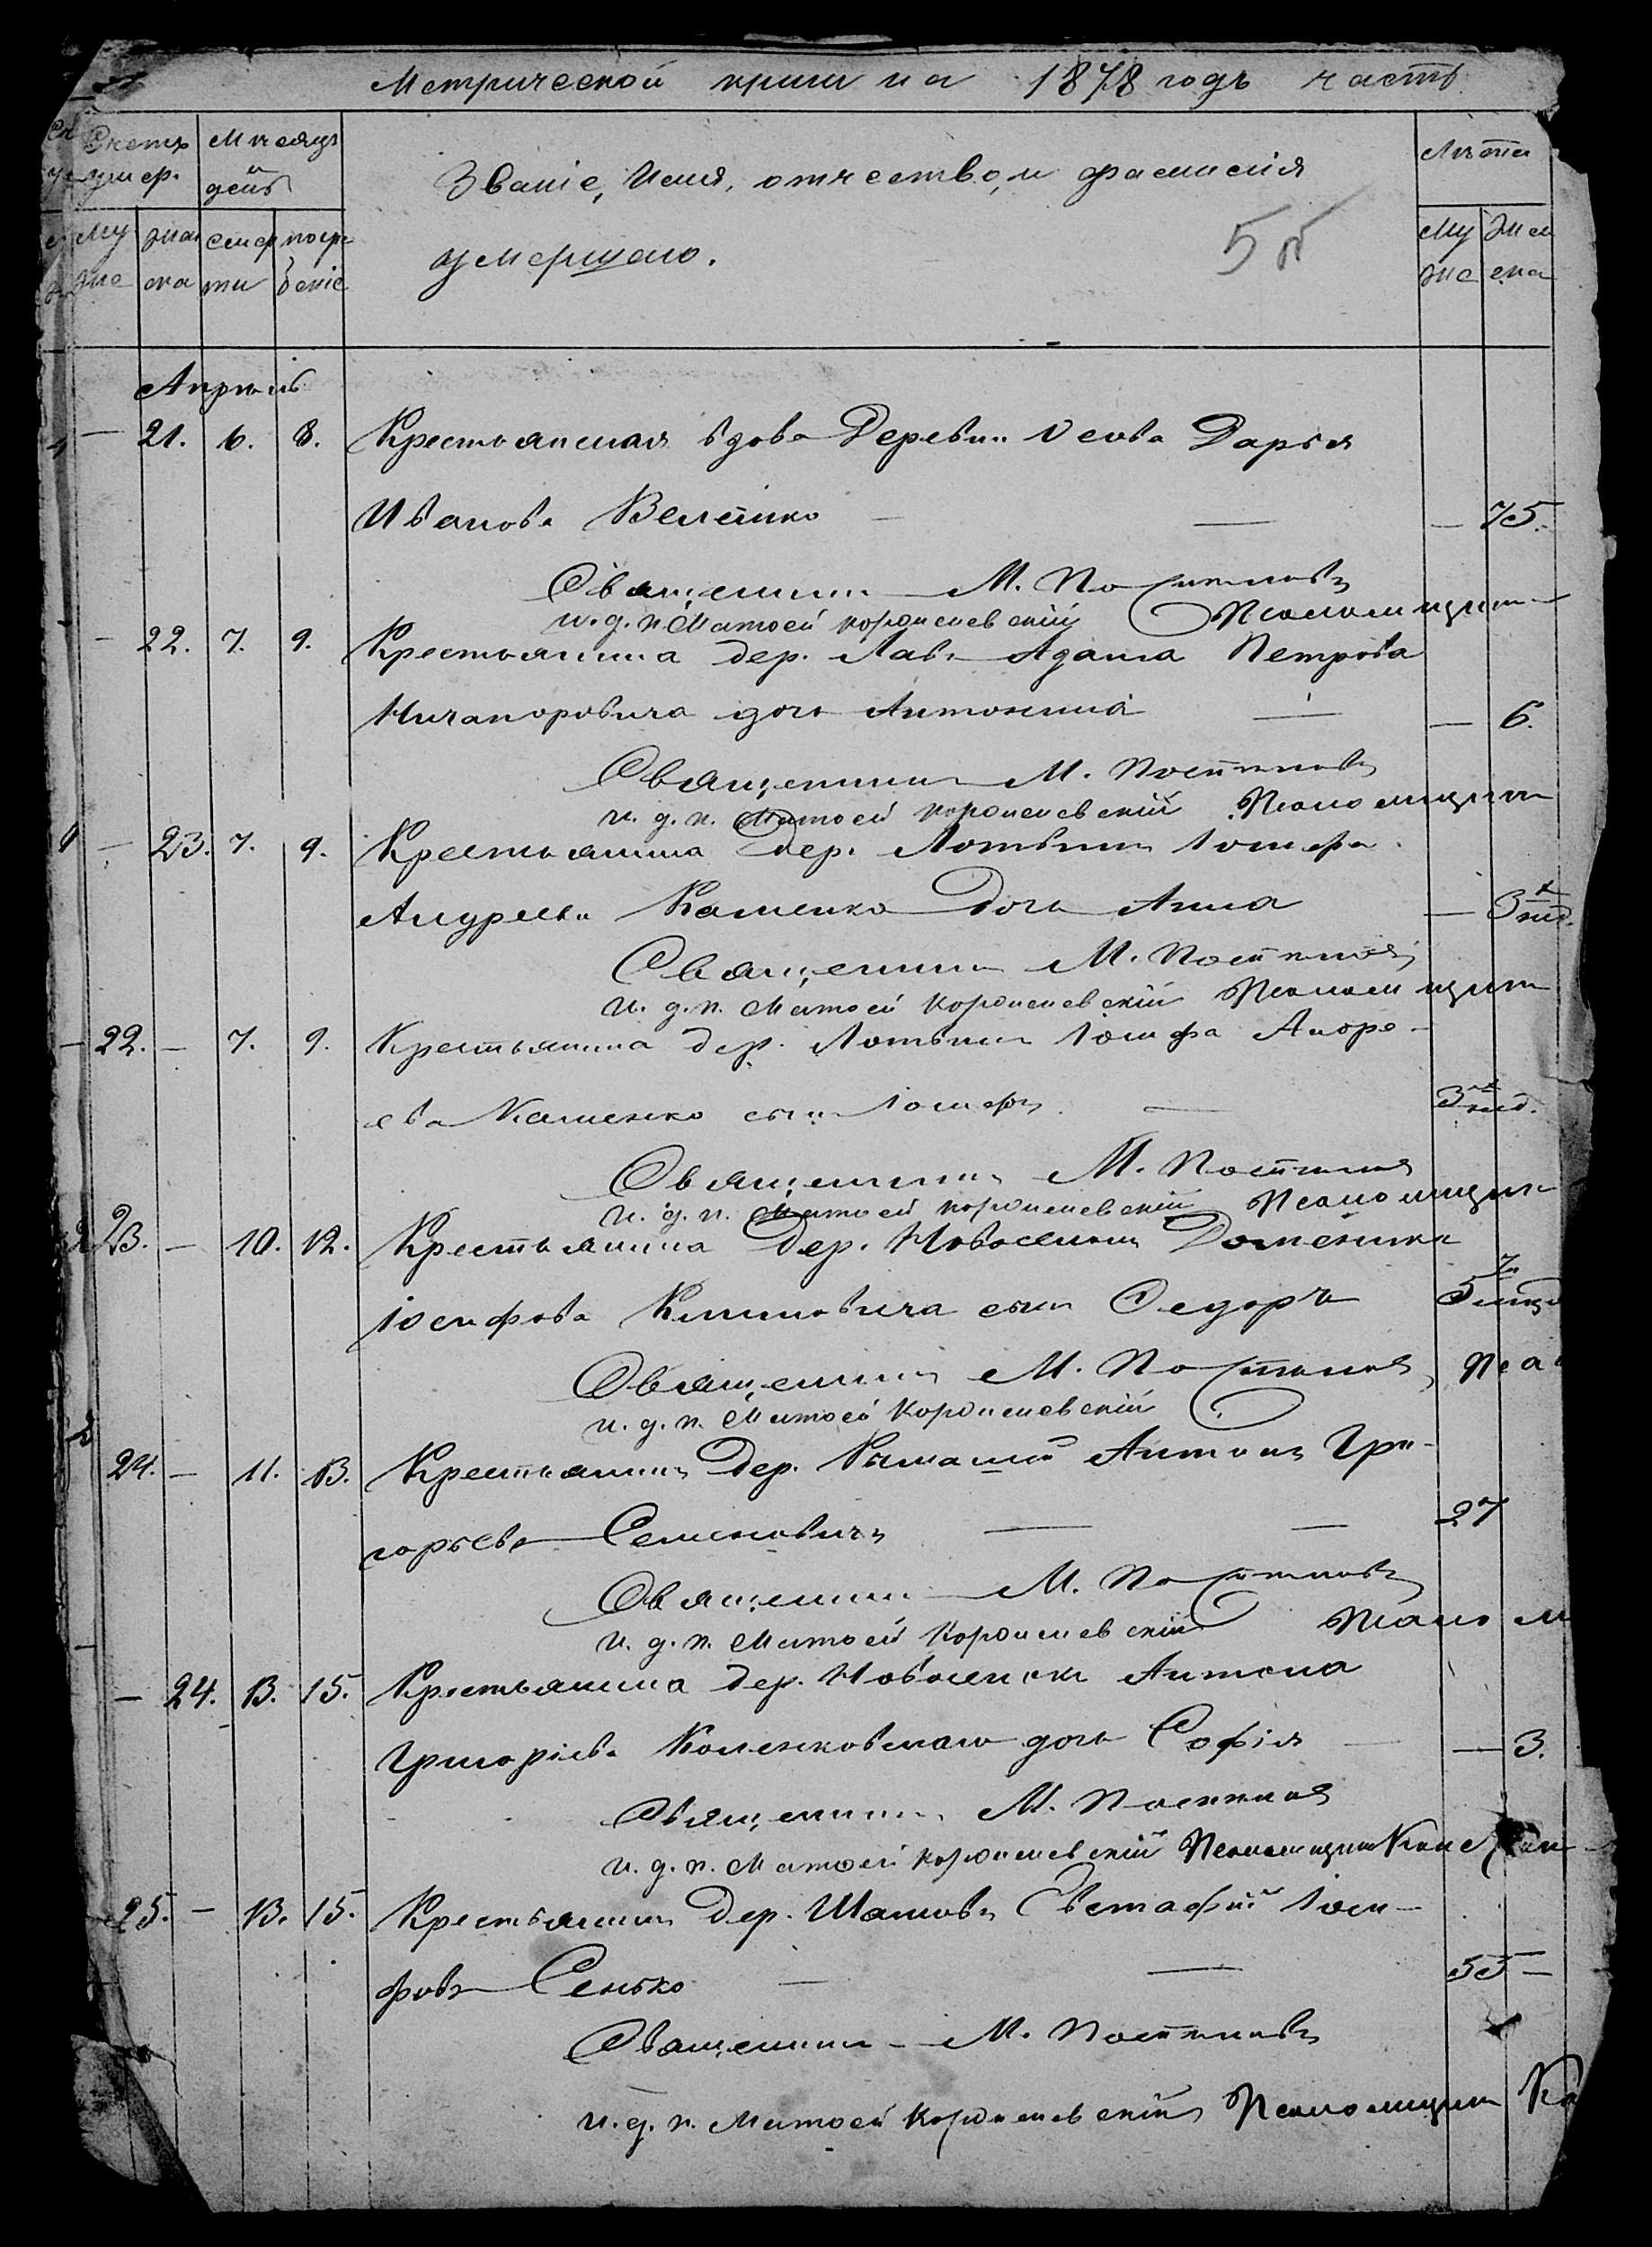 Метрической книги на 1878 годъ часть
Счетъ умер.
Мѣсяцъ и день
Званіе, Имя, отчество, и фамилія
умершаго.
Лѣта
Му же
Жен ска
смер ти
погре беніе
Му же
Жен ска
Апрѣль
— 21. 6. 8. Крестьянская вдова Деревни Дарья
Иванова Велейко — — — 75.
Священникъ М. Постниковъ
и. д. п. Матѳей Корониевскій Псаломщикъ
— 22. 7. 9. Крестьянина дер. Адама Петрова
Ничапоровича дочь Антонина — — 6.
Священникъ М. Постниковъ
и. д. п. Матѳей Корониевскій Псаломщикъ
— 23. 7. 9. Крестьянина Дер. Іосифа
Андреева Каменко Дочь Анна — 3 нед.
Священникъ М. Постниковъ
и. д. п. Матѳей Корониевскій Псаломщикъ
22. — 7. 9. Крестьянина дер. Іосифа Андре-
ева Каменко сынъ Іосифъ — 3 нед.
Священникъ М. Постниковъ
и. д. п. Матѳей Корониевскій Псаломщикъ
23. — 10. 12. Крестьянина Дер. Новоселокъ Доменика
Іосифова Климовича сынъ Ѳедоръ
Священникъ М. Постниковъ Пса
и. д. п. Матѳей Корониевскій
24. — 11. 13. Крестьянинъ Дер. Антонъ Гри-
горьевъ Семеновичъ — — 27
Священникъ М. Постниковъ
и. д. п. Матѳей Корониевскій Псалом
— 24. 13. 15. Крестьянина дер. Новоселокъ Антона
Григорьева дочь Софія — — 3.
Священникъ М. Постниковъ
и. д. п. Матѳей Корониевскій Псаломщикъ
25. — 13. 15. Крестьянинъ Дер. Евстафій Іоси-
фовъ Сенько — — 55 —
Священникъ М. Постниковъ
и. д. п. Матѳей Корониевскій Псаломщикъ Ко